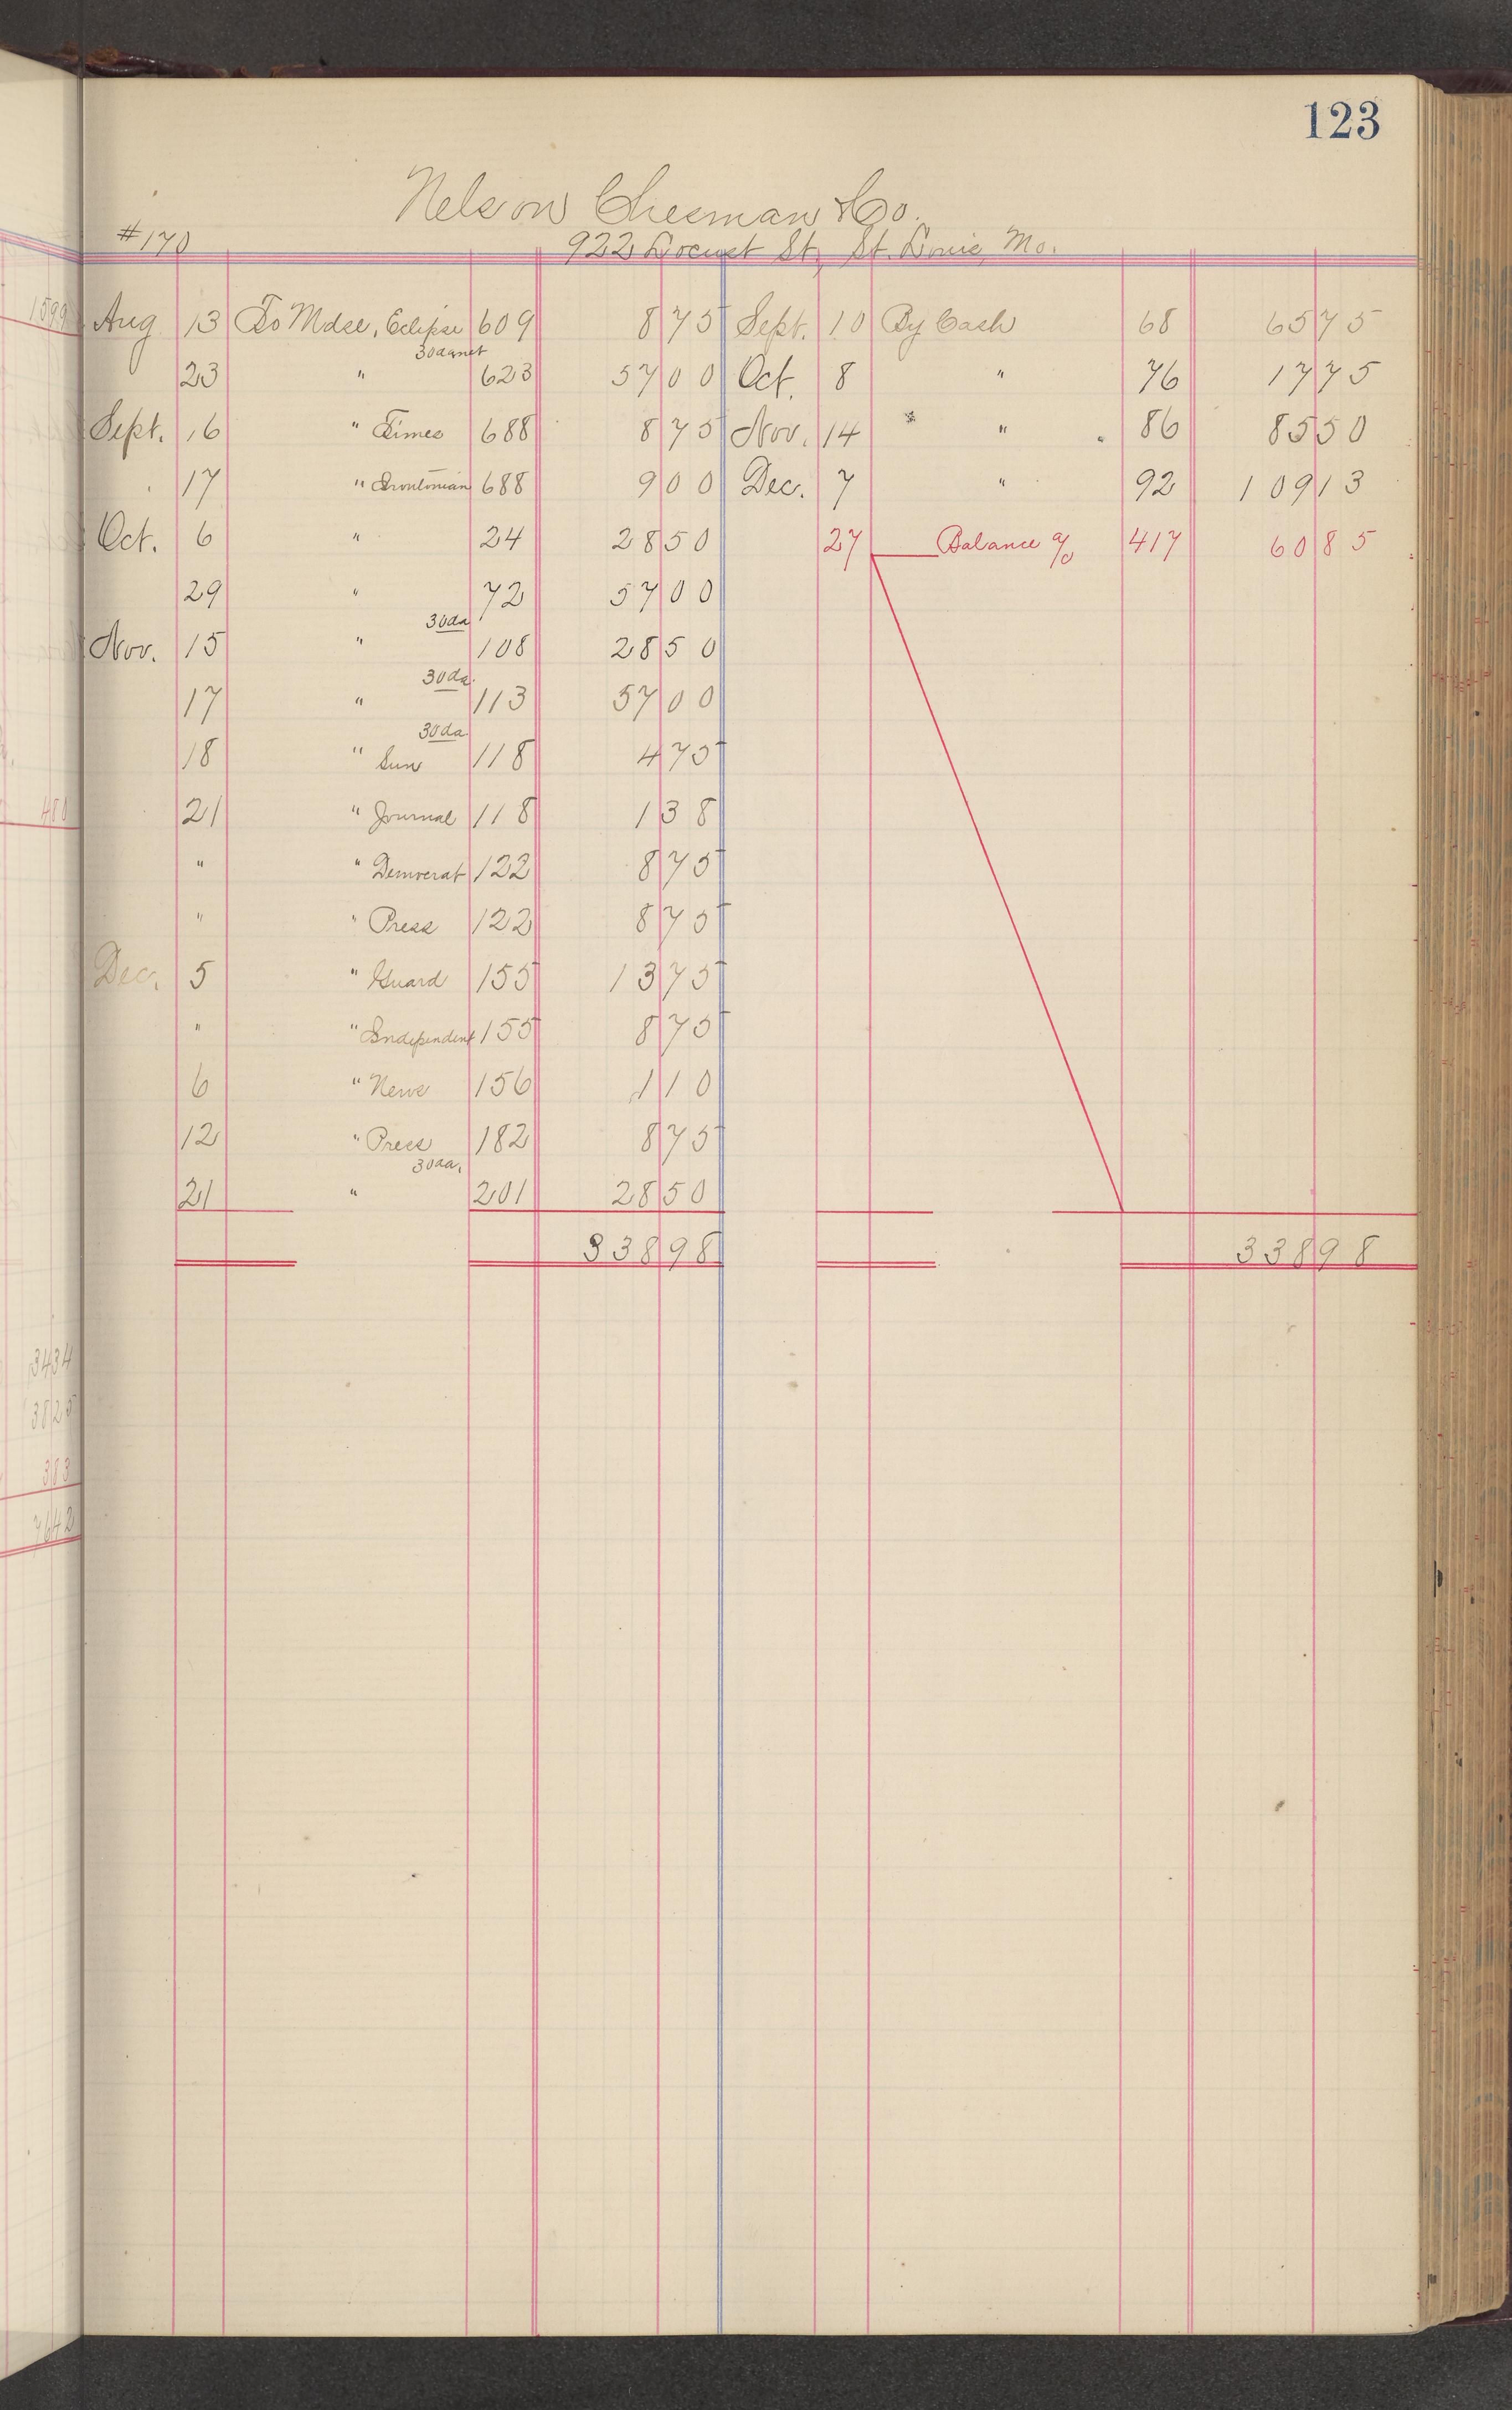 123
Nelson Chesman & Co.
#170 922 Locust St. St. Louis, Mo.
1599 Aug 13 To Mdse, Eclipse 609 8 75 Sept. 10 By Cash 68 65 75
30 da net
23 " 623 57 00 Oct. 8 " 76 17 75
Sept. 16 " Times 688 8 75 Nov. 14 " 86 85 50
17 " Irontonian 688 9 00 Dec. 7 " 92 109 13
Oct. 6 " 24 28 50 27 Balance a/c 417 60 85
29 " 72 57 00
30 da
Nov. 15 " 108 28 50
30 da.
17 " 113 57 00
30 da
18 " Sun 118 4 75
480 21 " Journal 118 1 38
" " Democrat 122 8 75
" " Press 122 8 75
Dec. 5 " Guard 155 13 75
" " Independent 155 8 75
6 " News 156 1 10
12 " Press 182 8 75
30 da.
21 " 201 28 50
338 98 338 98
3434
3825
383
7642